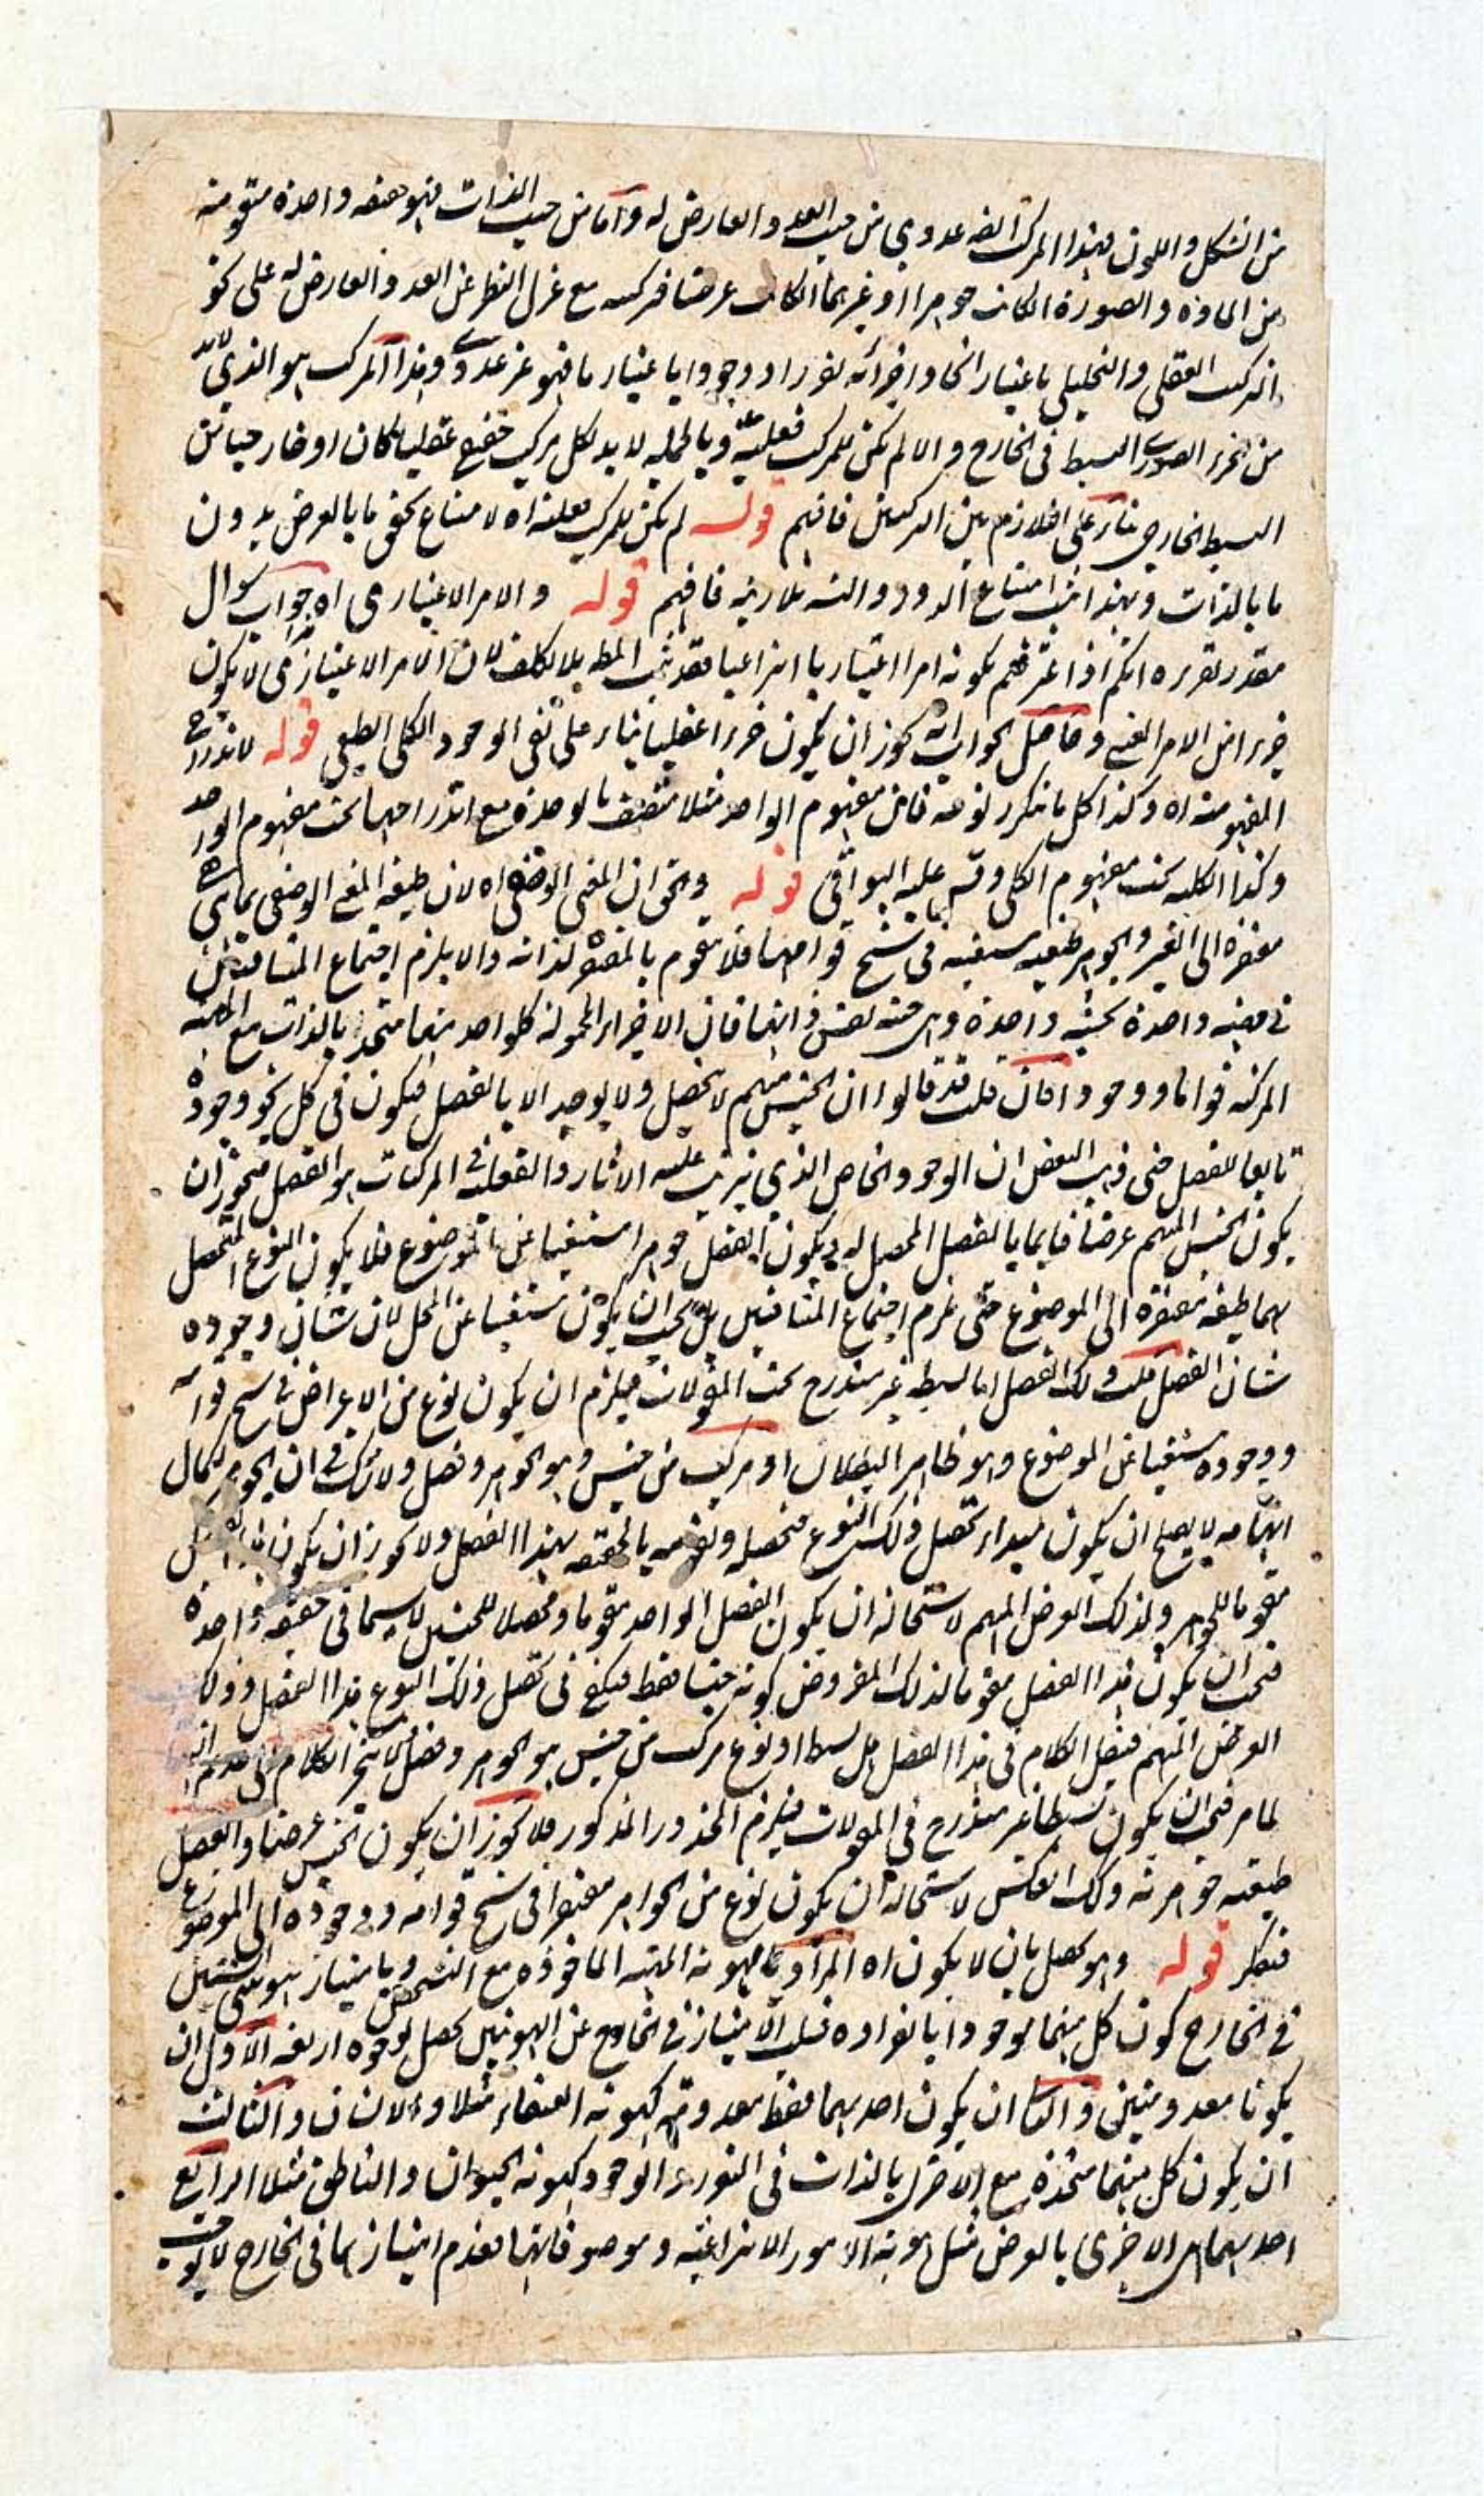 من الشكل واللون فهذا المركب عددي من حيث العدد والعارض له وأما من حيث الذات فهو حقيقة واحدة متقومة
من المادة والصورة ان كانت جوهرا او غيرهما ان كانت عرضا فتركبه مع عزل النظر عن العدد والعارض له على نحو
التركب العقلي والتحليلي باعتبار اتحاد اجزائه تقررا ووجودا باعتبار ما فهو غير عددي وهذا المركب هو الذي لابد
من الجزء الصوري البسيط في الخارج والا لم يكن للمركب فعلية وبالجملة لا بد لكل مركب حقيقي عقليا كان او خارجيا من
البسيط الخارجي بناء على التلازم بين التركيبين فافهم قوله لم يكن للمركب فعلية اه لامتناع تحقق ما بالعرض بدون
ما بالذات وبهذا امتناع الدور والتسلسل فافهم قوله والامر الاعتباري اه جواب سوال
مقدر تقريره انكم اذا اعترفتم بكونه امرا اعتباريا انتزاعيا فقد ثبت المط بلا تكلف لان الامر الاعتباري لا يكون
جزءا من الامر العيني وحاصل الجواب انه يجوز ان يكون جزءا عقليا بناء على نفي الوجود الكلي الطبعي قوله لاندراج
المفهوم منه اه وكذا كل ما تكرر نوعه فان مفهوم الواحد مثلا متصف بالوحدة مع اندراجها تحت مفهوم الواحد
وكذا الكلية تحت مفهوم الكلي وقس عليه البواقي قوله والحق ان المعنى الوصفي اه لان طبيعة المعنى الوصفي بما هي
مفتقرة الى الغير والجوهر طبيعة مستغنية في سنخ قوامها فلا يتقوم بالمفتقر لذاته والا يلزم اجتماع المتنافيين
في مهية واحدة بحيثية واحدة وهي حيثية نفس ذاتها فان الاجزاء المحمولة كل واحد منها متحد بالذات مع المهية
المركبة قواما ووجودا فان قلت قد قالوا ان الجنس مبهم لا يحصل ولا يوجد الا بالفصل فيكون في كل نحو وجوده
تابعا للفصل حتى ذهب البعض ان الوجود الخاص الذي يترتب عليه الاثار والفعلية في المركبات هو الفصل فيجوز ان
يكون الجنس المبهم عرضا قائما بالفصل المحصل له ويكون الفصل جوهرا مستغنيا عن الموضوع فلا يكون النوع المتحصل
بهما طبيعة مفتقرة الى الموضوع حتى يلزم اجتماع المتنافيين بل يجب ان يكون مستغنيا عن المحل لان شان وجوده
شان الفصل قلت ذلك الفصل اما بسيط غير مندرج تحت المقولات فيلزم ان يكون نوع من الاعراض في سنخ قوامه
ووجوده مستغنيا عن الموضوع وهو ظاهر البطلان او مركب من جنس وهو الجوهر وفصل ولا شك في ان الجوهر لكمال
ابهامه لا يصلح ان يكون مبداء تحصل ذلك النوع فتحصله وتقومه بالحقيقة بهذا الفصل ولا يجوز ان يكون هذا الفصل
مقوما للجوهر ولذلك العرض المبهم لاستحالة ان يكون الفصل الواحد مقوما ومحصلا للجنسين لا سيما في حقيقة واحدة
فيجب ان يكون هذا الفصل مقوما لذلك المفروض كونه جنسا فقط فيكفي في تحصل ذلك النوع هذا الفصل وذلك
العرض المبهم فينقل الكلام في هذا الفصل هل بسيط او نوع مركب من جنس هو الجوهر وفصل لا ينجر الكلام الى عدم
لما مر فيجب ان يكون بسيطا غير مندرج في المقولات فيلزم المحذور المذكور فلا يجوز ان يكون الجنس عرضا والفصل
طبيعة جوهرية وكذا العكس لاستحالة ان يكون نوع من الجواهر مفتقرا في سنخ قوامه ووجوده الى الموضوع
فتفكر قوله وهو يحصل بان لا يكون اه المراد بالهوية المهية الماخوذة مع التشخص وبامتياز هويتي الشيئين
في الخارج كون كل منهما موجودا بانفراده فسلب الامتياز في الخارج عن الهويتين يحصل بوجوه اربعة الاول ان
يكونا معدومتين والثاني ان يكون احدهما فقط معدومة كهوية العنقاء مثلا والانسان والثالث
ان يكون كل منهما متحدة مع الاخرى بالذات في التقرر والوجود كهوية الحيوان والناطق مثلا الرابع
احدهما مع الاخرى بالعرض مثل هوية الامور الانتزاعية وموصوفاتها فعدم امتيازهما في الخارج لا يوجب